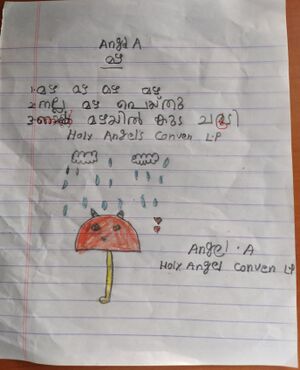 Angel A
മഴ
1. മഴ മഴ മഴ മഴ
2. നല്ല മഴ പെയ്തു
3. ഞാൻ മഴയിൽ കുട ചൂടി
Holy Angels Conven L.P
Angel . A
Holy Angel Conven LP